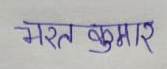 भरत कुमार